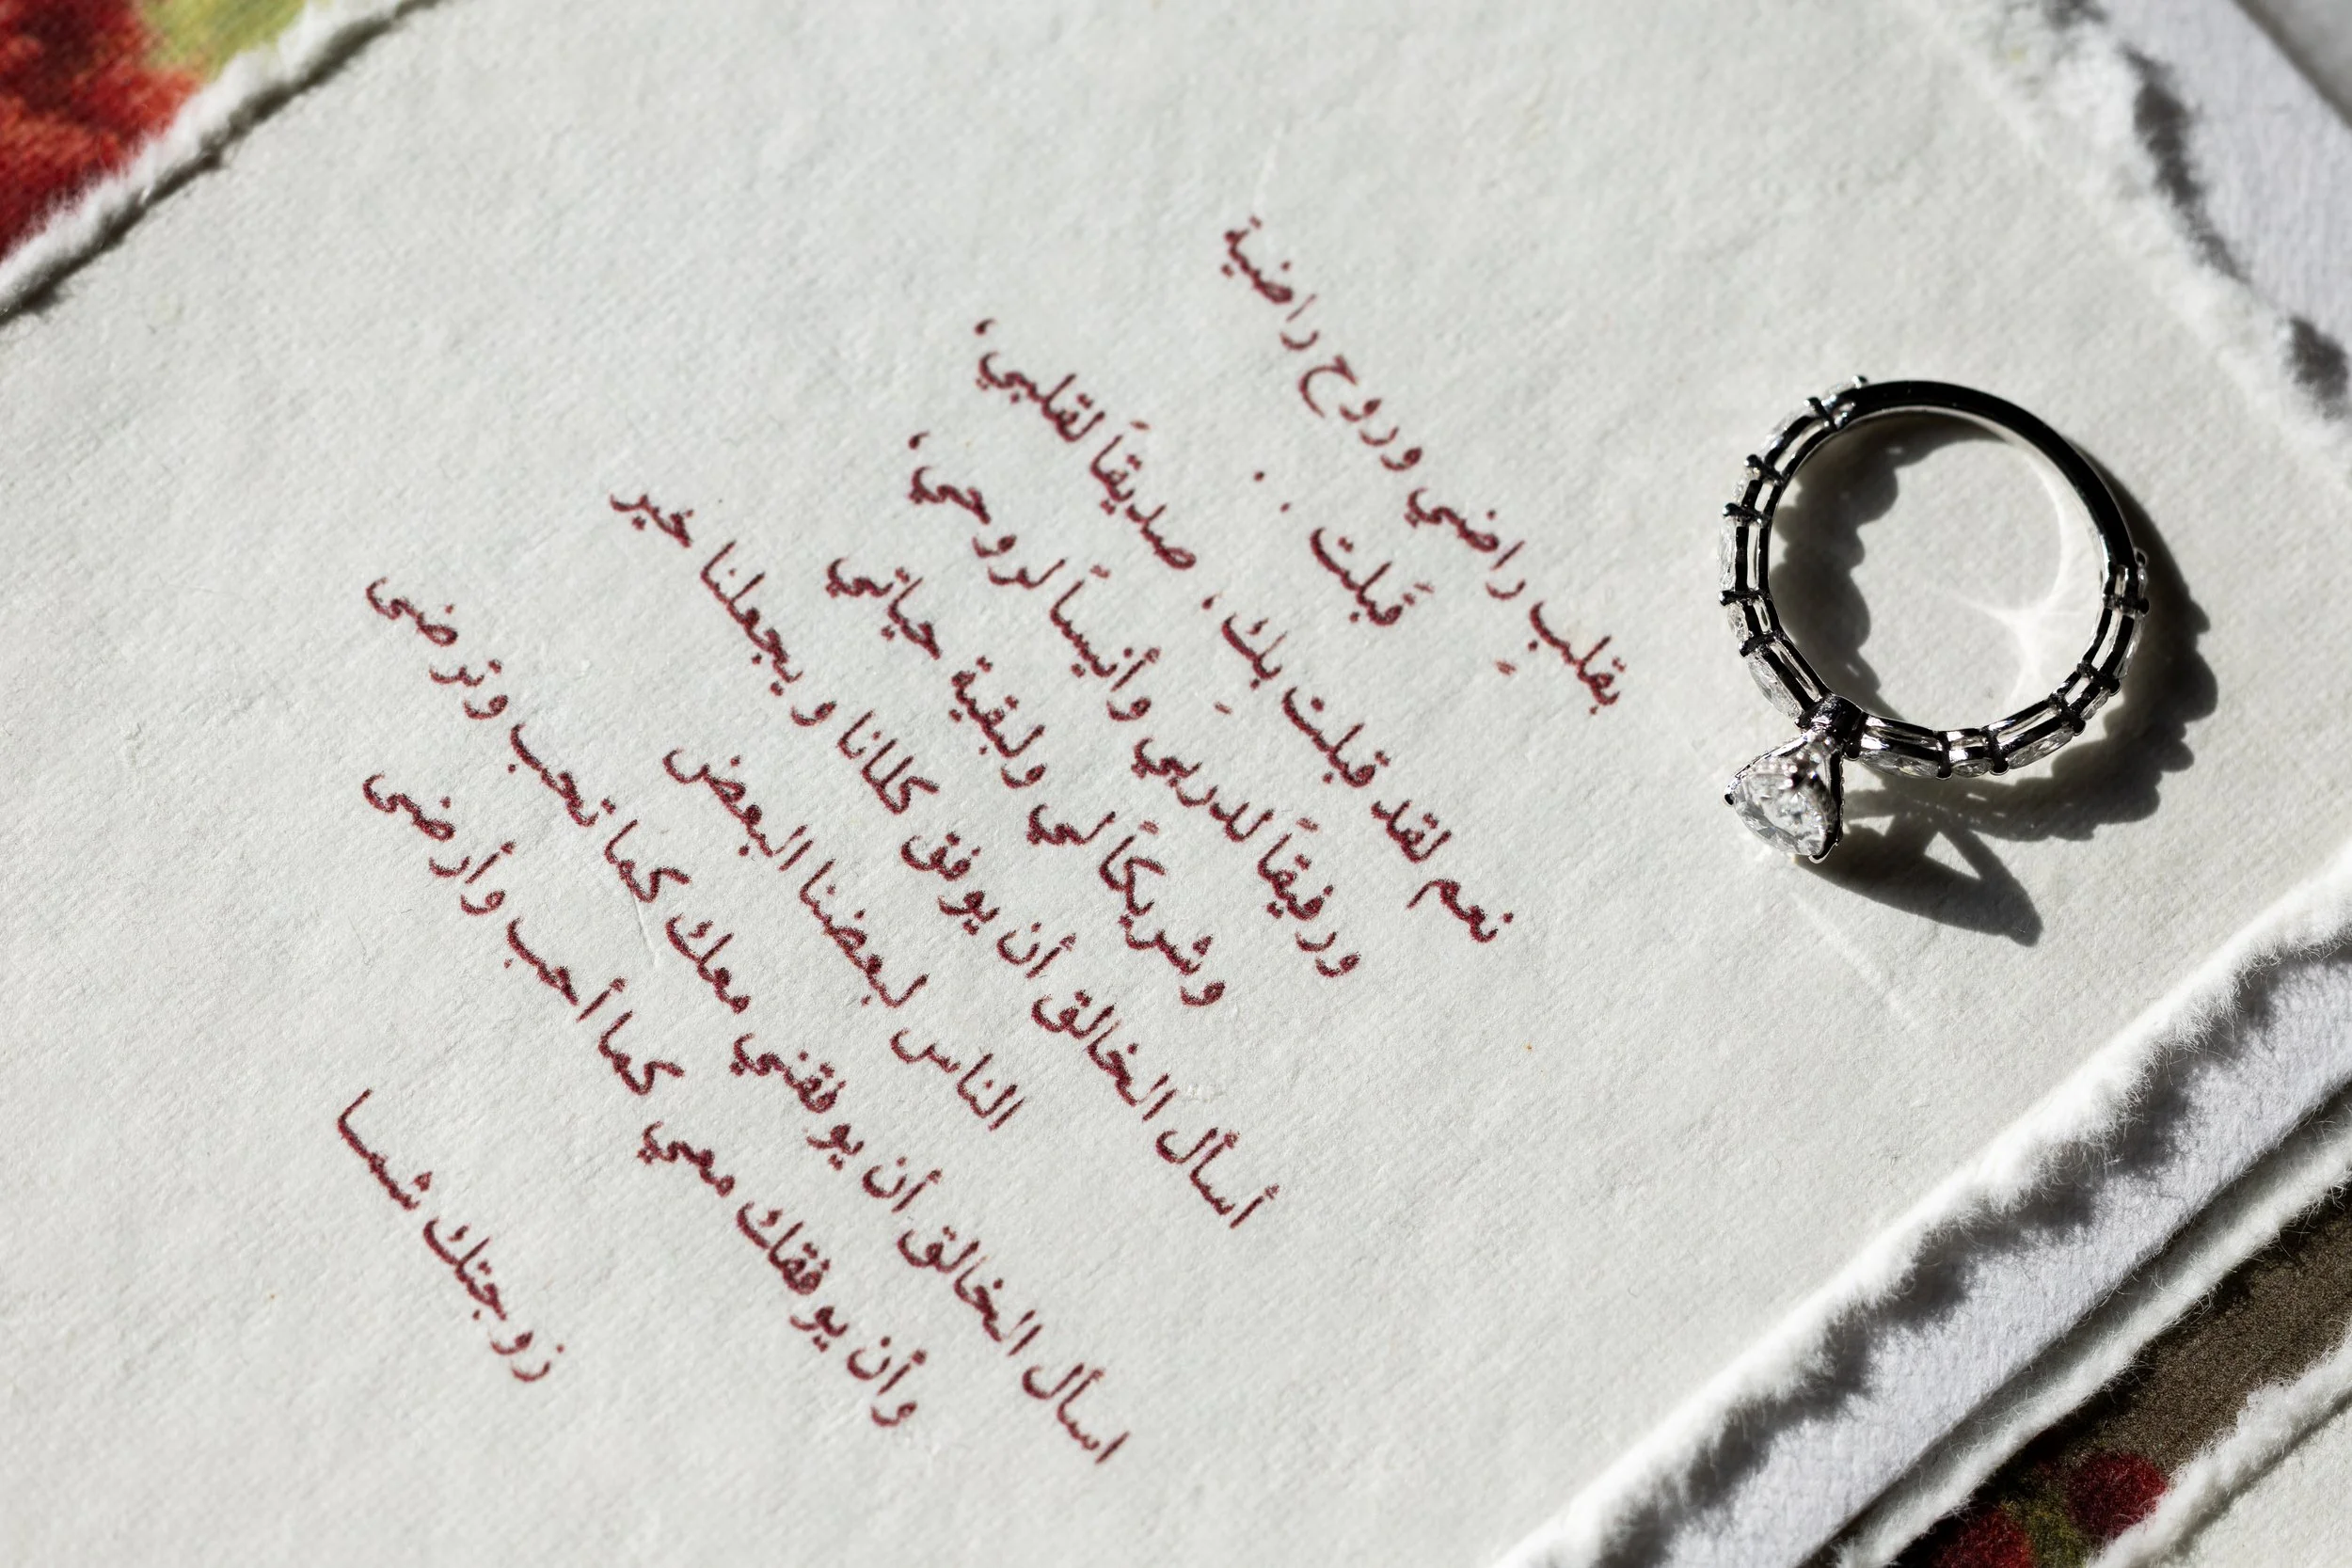 بقلبِ راضي وروح راضية
قَبلت . .
نعم لقد قبلت بكَ، صديقاً لقلبي،
ورفيقاً لدربي وأنيساً لروحي،
وشريكاً لي ولبقية حياتي
أسأل الخالق أن يوفق كلانا و يجعلنا خير
الناس لبعضنا البعض
اسأل الخالق أن يوفقني معك كما تحب وترضى
وأن يوفقك معي كما أحب وأرضى
زوجتك شما